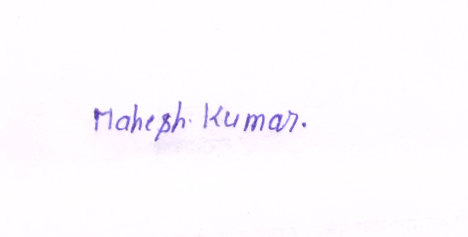 Mahesh. Kumar.